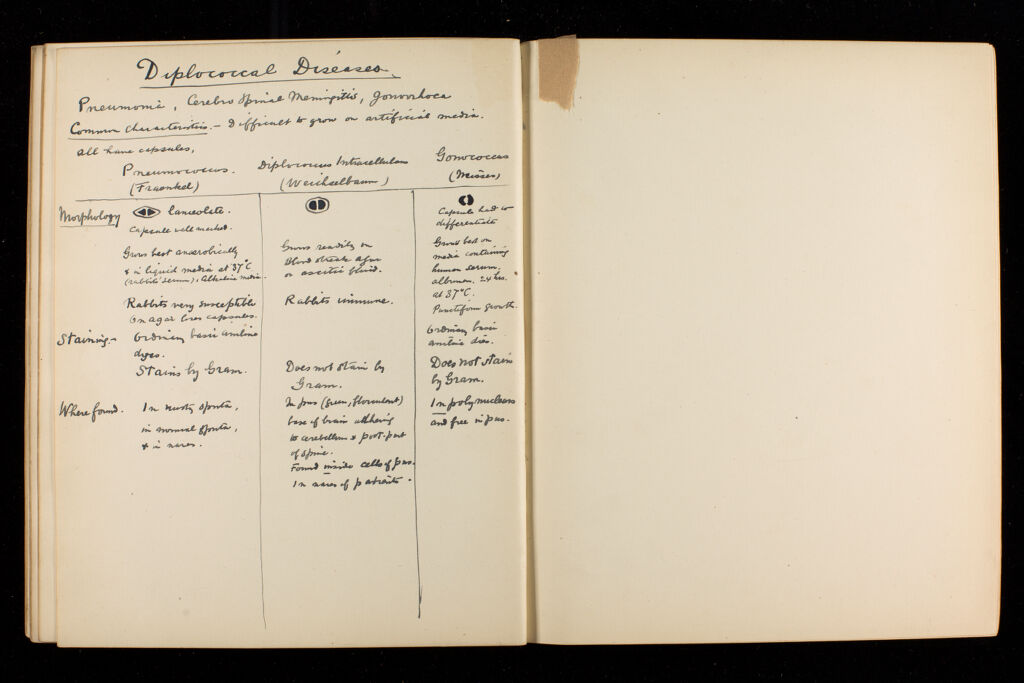 Diplococcal Diseases.
Pneumonia, Cerebro Spinal Meningitis, Gonorrhoea
Common characteristics. - Difficult to grow on artificial media.
all have capsules,
Pneumococcus.
(Fraenkel)
Diplococcus Intracellularis
(Weichselbaum)
Gonococcus
(Neisser)
Morphology
lanceolate.
Capsule well marked.
Grows best anaerobically
& in liquid media at 37°C
(rabbits' serum), Alkaline media.
Rabbits very susceptible
On agar loses capsules.
Staining. -
Ordinary basic aniline
dyes.
Stains by Gram.
Where found.
In rusty sputa,
in normal sputa,
& in nares.
Grows readily on
blood streak agar
or ascitic fluid.
Rabbits immune.
Does not stain by
Gram.
In pus (green, flocculent)
base of brain adhering
to cerebellum & post. part
of spine.
Found inside cells of pus.
In nares of patients.
Capsule hard to
differentiate
Grows best on
media containing
human serum,
albumen. 24 hrs.
at 37°C.
Punctiform growth.
Ordinary basic
aniline dies.
Does not stain
by Gram.
In polynuclears
and free in pus.